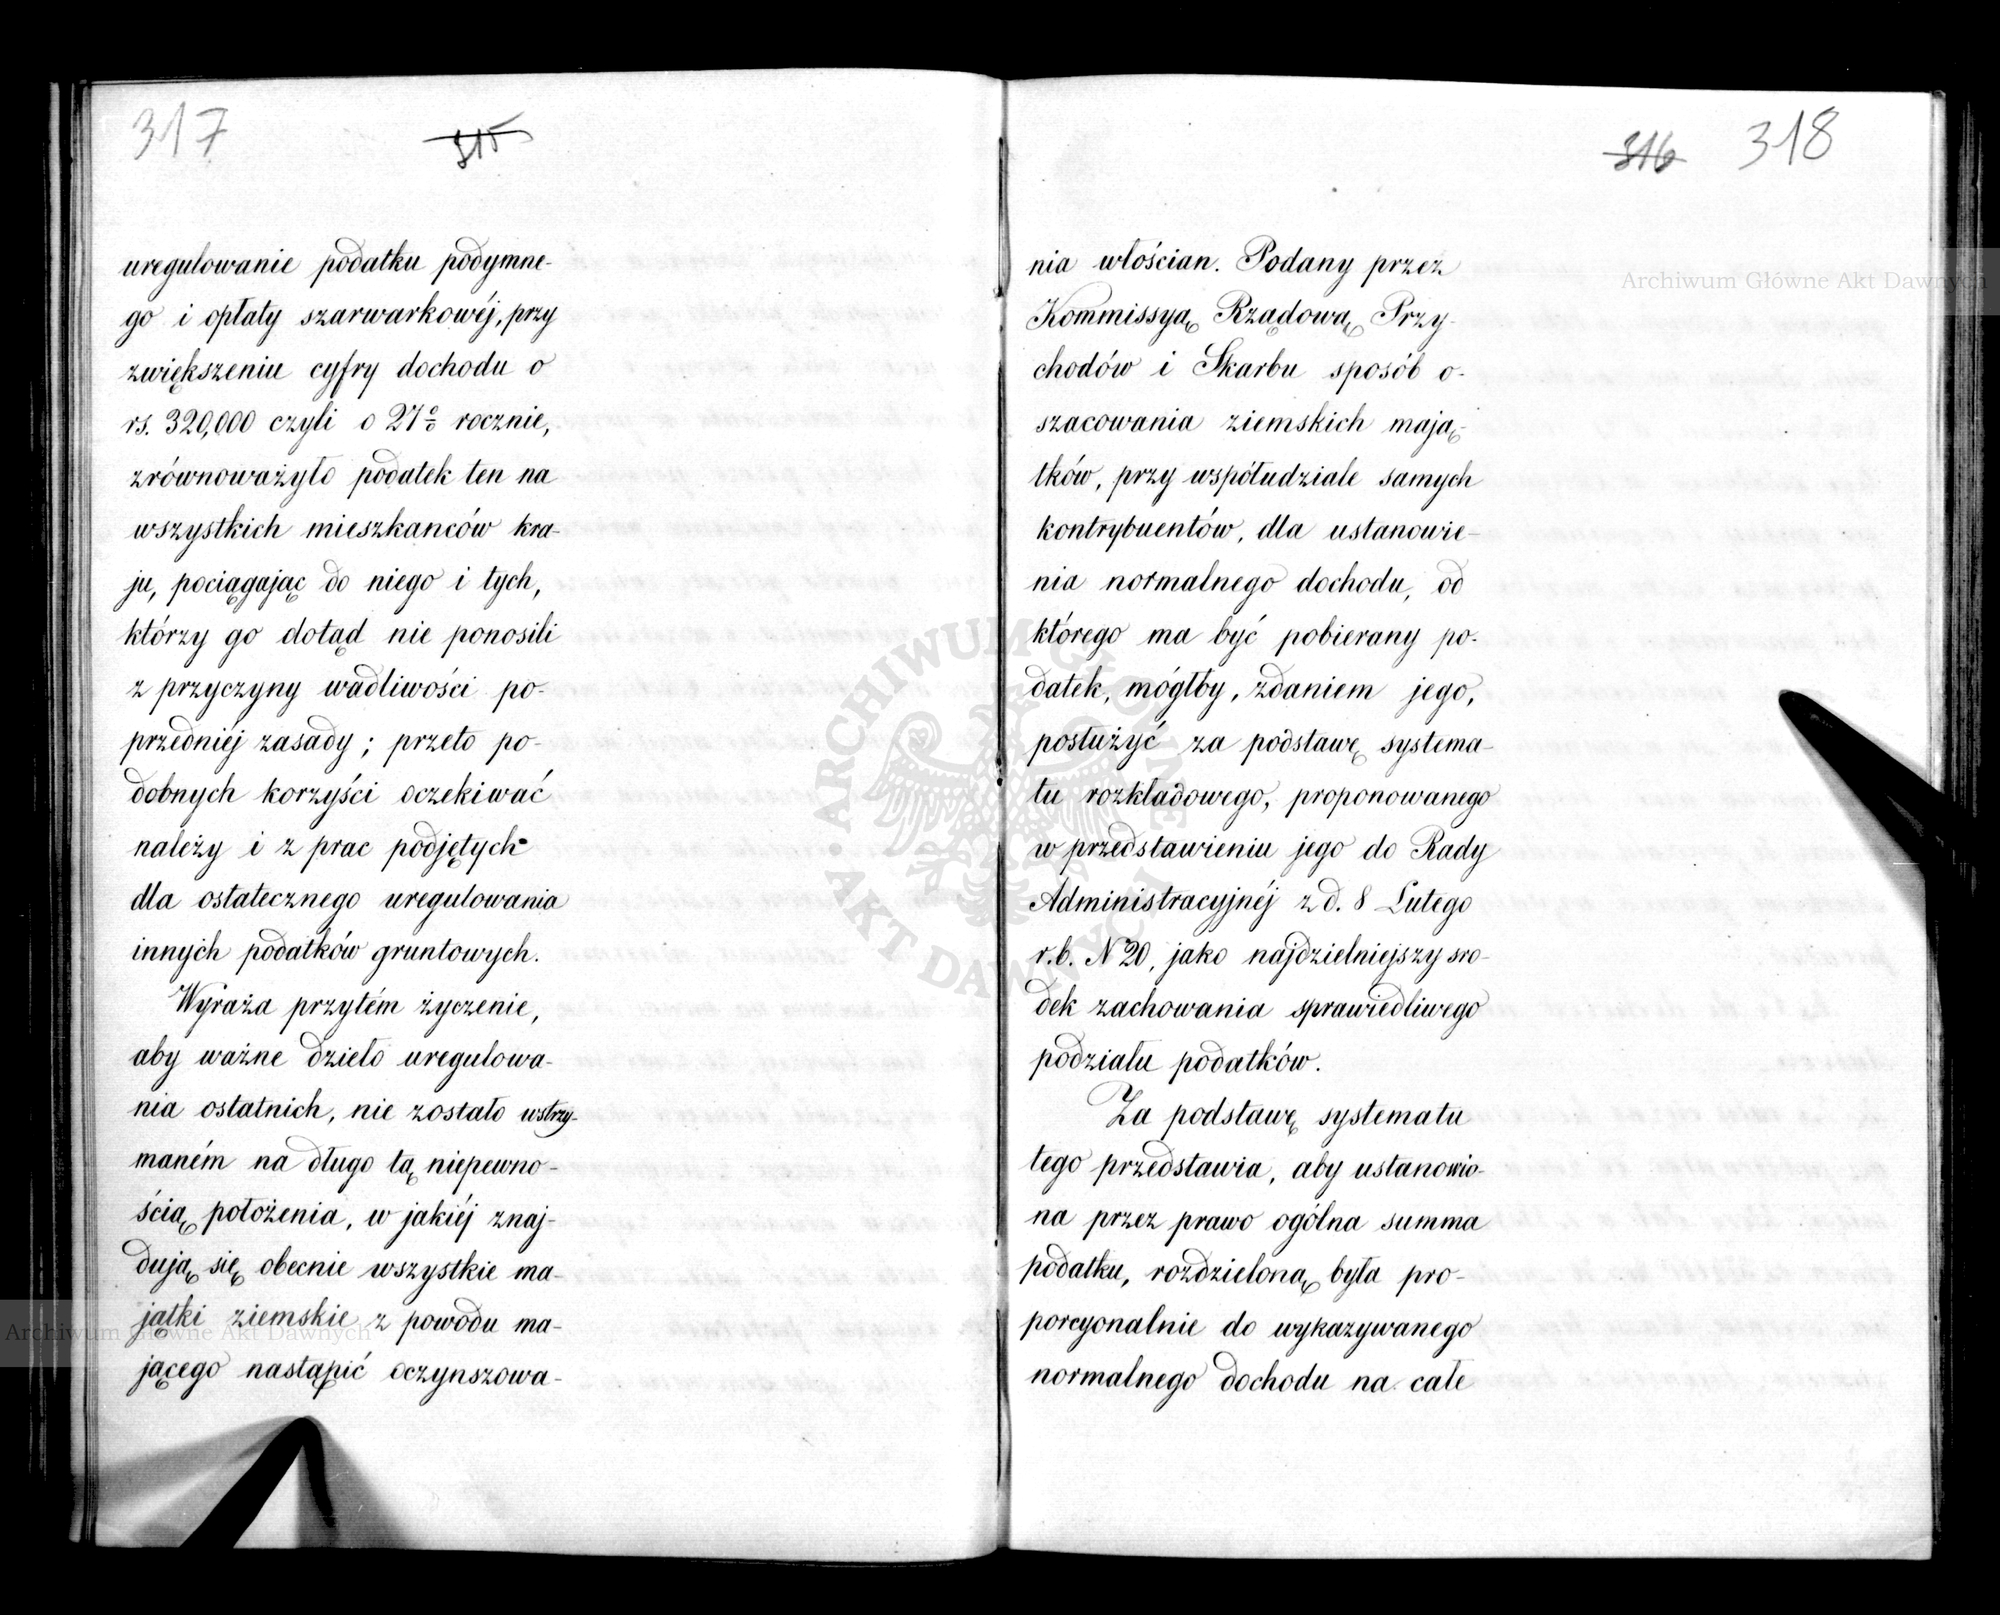 317
315
uregulowanie podatku podymne-
go i opłaty szarwarkowéj, przy
zwiększeniu cyfry dochodu o
rs. 320,000 czyli o 27% rocznie,
zrównoważyło podatek ten na
wszystkich mieszkanców kra-
ju, pociągając do niego i tych,
którzy go dotąd nie ponosili
z przyczyny wadliwości po-
przedniéj zasady; przeto po-
dobnych korzyści oczekiwać
należy i z prac podjętych
dla ostatecznego uregulowania
innych podatków gruntowych.
Wyraża przytém życzenie,
aby ważne dzieło uregulowa-
nia ostatnich, nie zostało wstrzy-
maném na długo tą niepewno-
ścią położenia, w jakiéj znaj-
dują się obecnie wszystkie ma-
jątki ziemskie z powodu ma-
jącego nastąpić oczynszowa-
316
318
nia włościan. Podany przez
Kommissyą Rządową Przy-
chodów i Skarbu sposób o-
szacowania ziemskich mają-
tków, przy współudziale samych
kontrybuentów, dla ustanowie-
nia normalnego dochodu, od
którego ma być pobierany po-
datek, mógłby, zdaniem jego,
posłużyć za podstawę systema-
tu rozkładowego, proponowanego
w przedstawieniu jego do Rady
Administracyjnéj z d. 8 Lutego
r.b. N 20, jako najdzielniejszy sro-
dek zachowania sprawiedliwego
podziału podatków.
Za podstawę systematu
tego przedstawia, aby ustanowio-
na przez prawo ogólna summa
podatku, rozdzieloną była pro-
porcyonalnie do wykazywanego
normalnego dochodu na całe
Archiwum Główne Akt Dawnych
Archiwum Główne Akt Dawnych
ARCHIWUM GŁÓWNE
AKT DAWNYCH